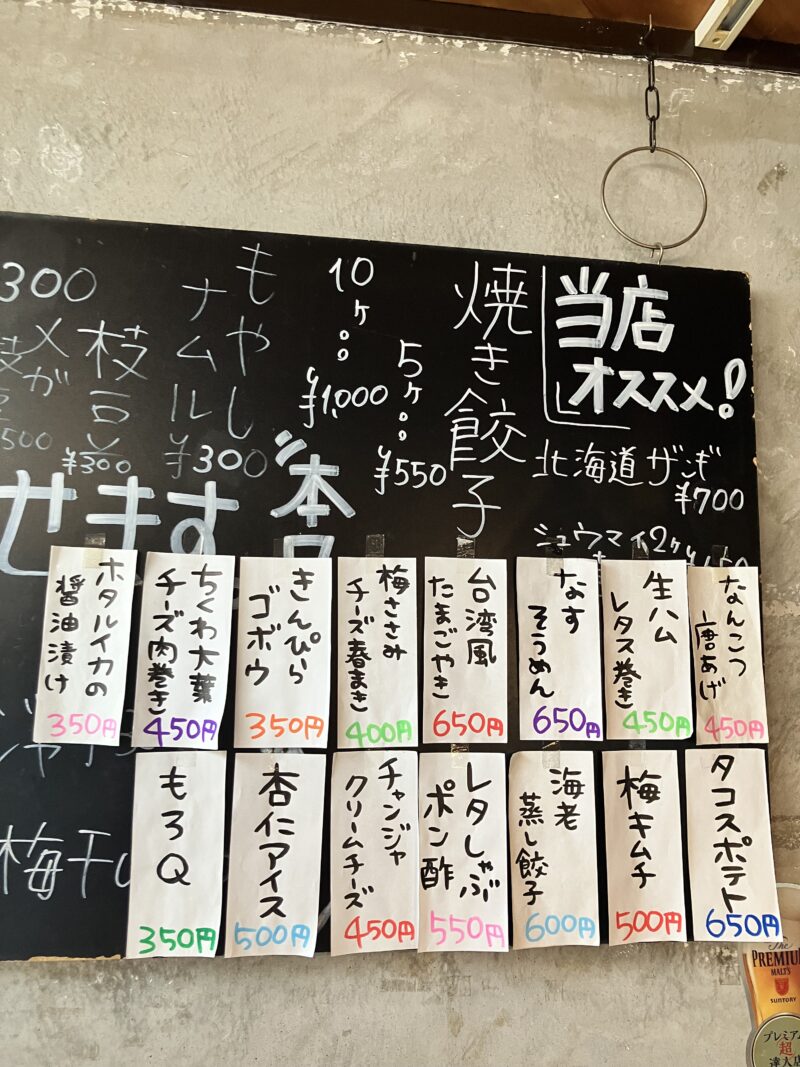 当店
オススメ!
北海道ザンギ
¥700
焼き餃子
5ヶ。。
¥550
10ヶ。。
¥1,000
もやし
ナムル
¥300
枝豆
¥300
300
500
せます
シュウマイ2ヶ
なんこつ
唐あげ
450円
生ハム
レタス巻き
450円
なす
そうめん
650円
台湾風
たまごやき
650円
梅ささみ
チーズ春まき
400円
きんぴら
ゴボウ
350円
ちくわ大葉
チーズ肉巻き
450円
ホタルイカの
醤油漬け
350円
タコスポテト
650円
梅キムチ
500円
海老
蒸し餃子
600円
レタしゃぶ
ポン酢
550円
チャンジャ
クリームチーズ
450円
杏仁アイス
500円
もろQ
350円
梅干し
The
PREMIUM
MALT'S
SUNTORY
プレミアム
超
達人店